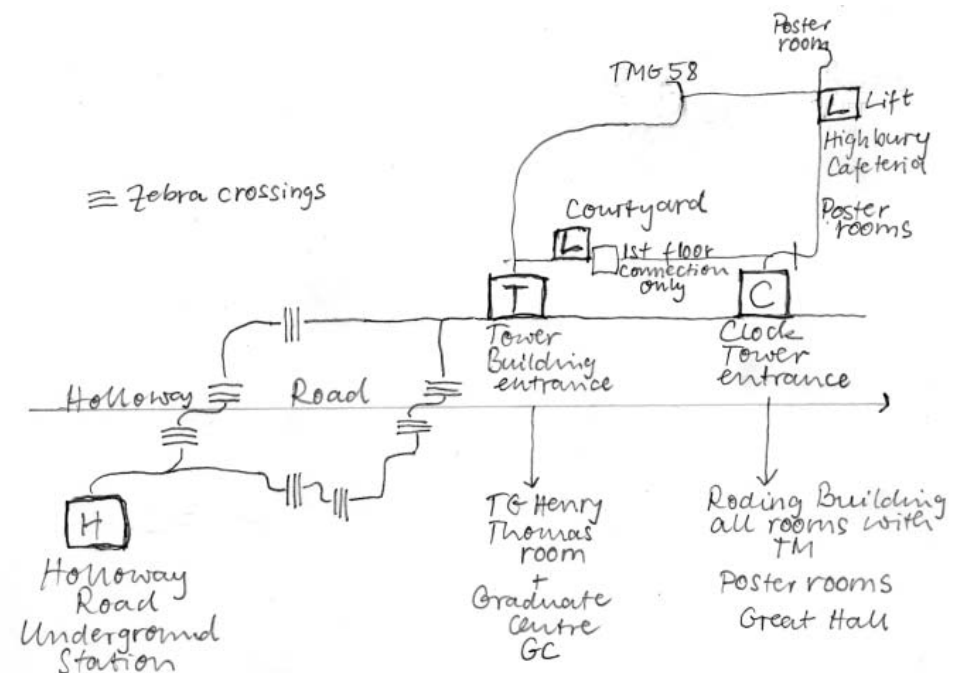 Poster
room
TMG 58
L Lift
Highbury
Cafeteria
Zebra crossings
Courtyard
Poster
rooms
L
1st floor
connection
only
T
C
Tower
Building
entrance
Clock
Tower
entrance
Holloway Road
H
Holloway
Road
Underground
Station
TG Henry
Thomas
room
+
Graduate
Centre
GC
Roding Building
all rooms with
TM
Poster rooms
Great Hall